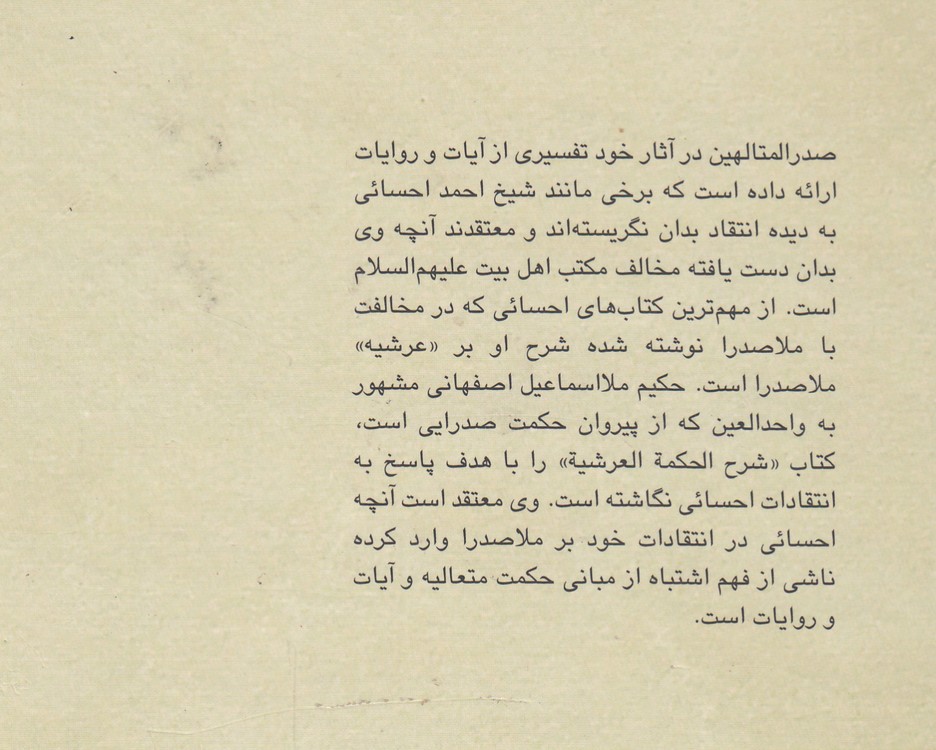 صدرالمتالهین در آثار خود تفسیری از آیات و روایات
ارائه داده است که برخی مانند شیخ احمد احسائی
به دیده انتقاد بدان نگریسته‌اند و معتقدند آنچه وی
بدان دست یافته مخالف مکتب اهل بیت علیهم‌السلام
است. از مهم‌ترین کتاب‌های احسائی که در مخالفت
با ملاصدرا نوشته شده شرح او بر «عرشیه»
ملاصدرا است. حکیم ملااسماعیل اصفهانی مشهور
به واحدالعین که از پیروان حکمت صدرایی است،
کتاب «شرح الحکمة العرشیة» را با هدف پاسخ به
انتقادات احسائی نگاشته است. وی معتقد است آنچه
احسائی در انتقادات خود بر ملاصدرا وارد کرده
ناشی از فهم اشتباه از مبانی حکمت متعالیه و آیات
و روایات است.